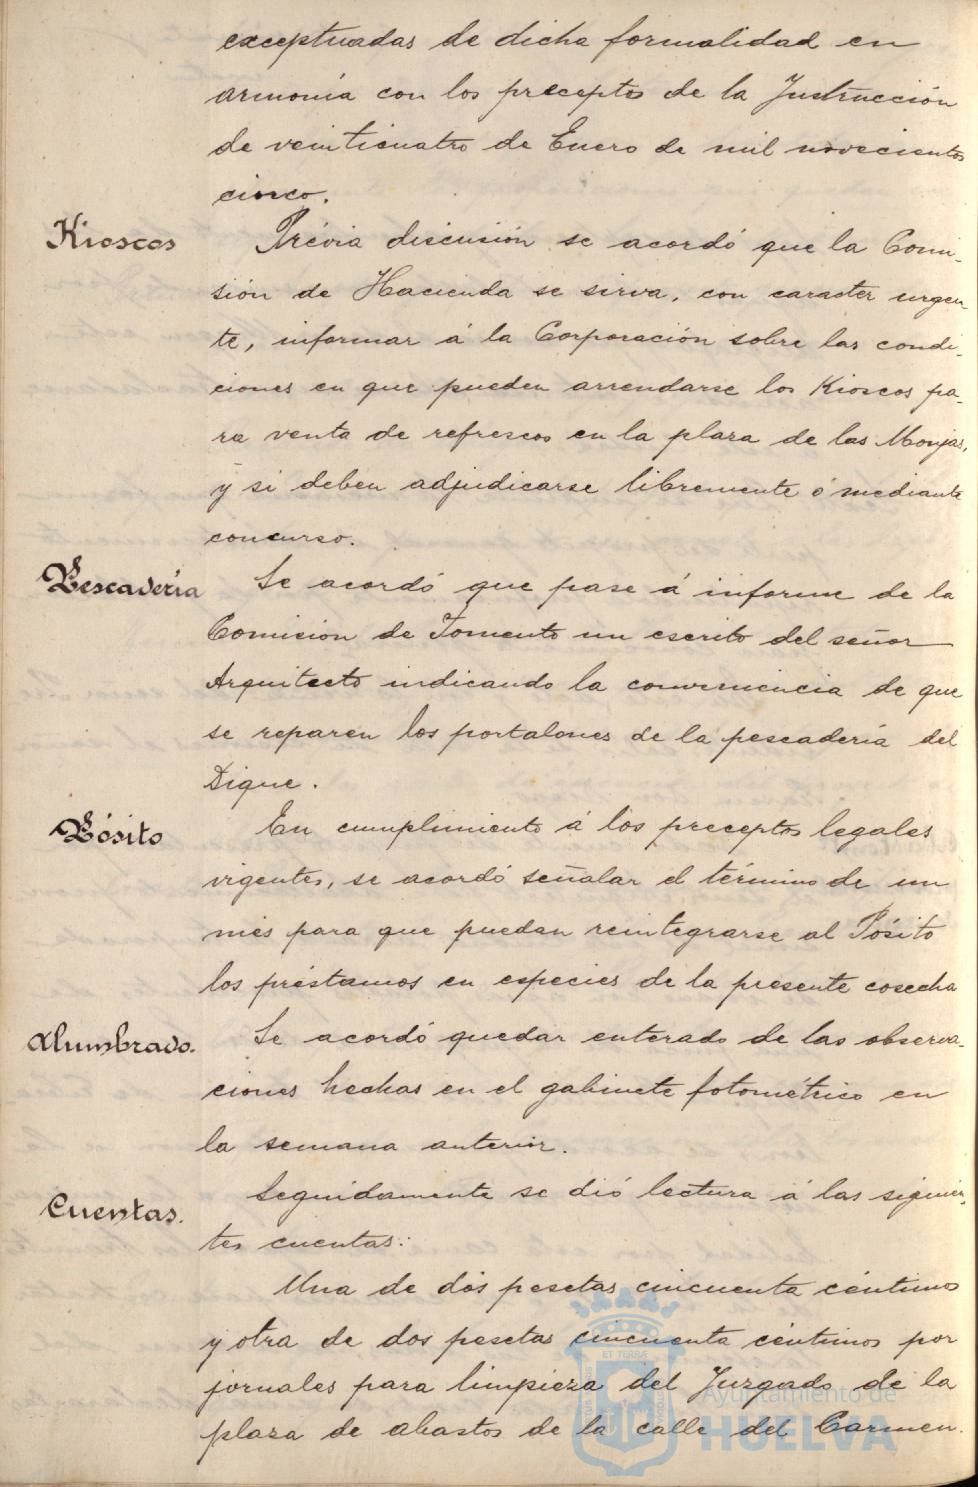 exceptuadas de dicha formalidad en
armonía con los preceptos de la Instrucción
de veinticuatro de Enero de mil novecientos
cinco.
Kioscos
Prévia discusión se acordó que la Comi-
sión de Hacienda se sirva, con caracter urgen-
te, informar á la Corporación sobre las condi-
ciones en que pueden arrendarse los Kioscos pa-
ra venta de refrescos en la plaza de las Monjas,
y si deben adjudicarse libremente ó mediante
concurso.
Pescadería
Se acordó que pase á informe de la
Comisión de Fomento un escrito del señor
Arquitecto indicando la conveniencia de que
se reparen los portalones de la pescadería del
Dique.
Pósito
En cumplimiento á los preceptos legales
vigentes, se acordó señalar el término de un
mes para que puedan reintegrarse al Pósito
los préstamos en especies de la presente cosecha
Alumbrado.
Se acordó quedar enterado de las observa-
ciones hechas en el gabinete fotométrico en
la semana anterior.
Cuentas.
Seguidamente se dió lectura á las siguien-
tes cuentas:
Una de dós pesetas cincuenta céntimos
y otra de dos pesetas cincuenta céntimos por
jornales para limpieza del Juzgado de la
plaza de abastos de la calle del Carmen.
Ayuntamiento de
HUELVA